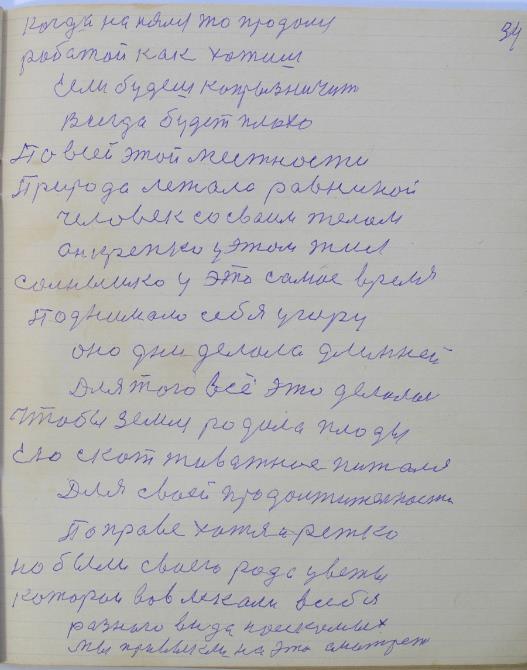 34
когда нанялся то продолж
работой как хотиш
Если будеш копрызничит
всегда будет плохо
По всей этой местности
Природа лежала равниной
человек со своим телом
он крепко у этом жил
солнышко у это самое время
Поднимало себя угору
оно дни делала длинней
Для того всё это делалос
Чтобы земля родила плоды
Ею скот животное питался
Для своей продолжительности
По праве хотя и редко
но были своего рода цветы
которои вовлекали всебя
разного вида насекомых
мы привыкли на это смотреть